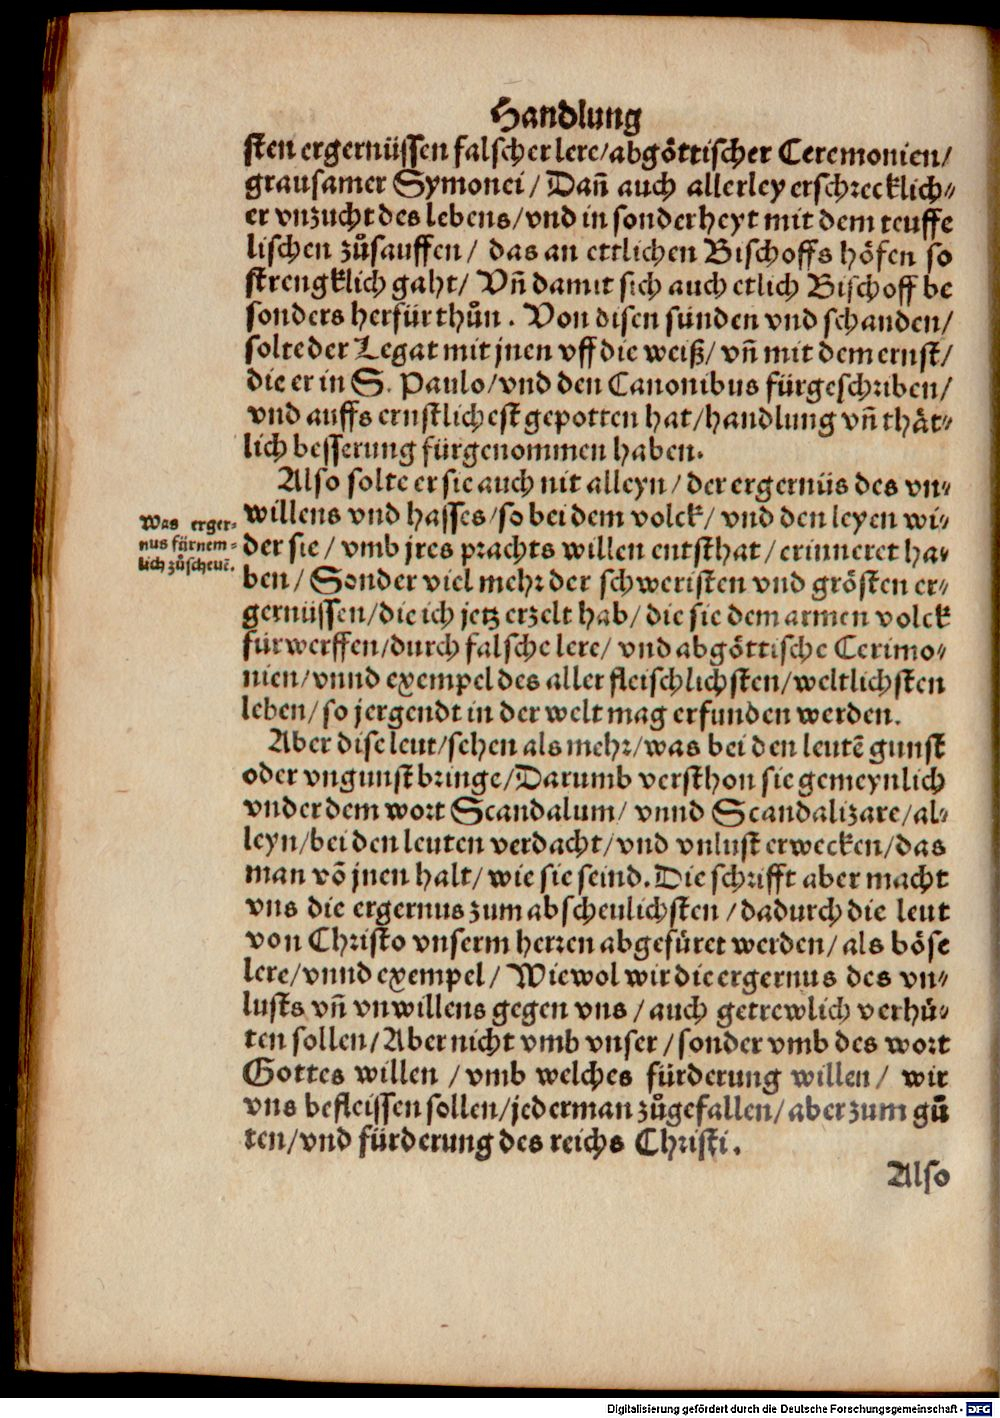 Handlung
sten ergernüssen falscher lere/abgöttischer Ceremonien/
grausamer Symonei / Dañ auch allerley erschrecklich⸗
er vnzucht des lebens/vnd in sonderheyt mit dem teuffe
lischen zůsauffen / das an ettlichen Bischoffs höfen so
strengklich gaht/ Vñ damit sich auch etlich Bischoff be
sonders herfür thůn . Von disen sünden vnd schanden/
solte der Legat mit jnen vff die weiß/ vñ mit dem ernst/
die er in S. Paulo/vnd den Canonibus fürgeschriben/
vnd auffs ernstlichest gepotten hat/handlung vñ thåt⸗
lich besserung fürgenommen haben.
Also solte er sie auch nit alleyn / der ergernüs des vn⸗
willens vnd hasses/so bei dem volck/ vnd den leyen wi⸗
der sie / vmb jres prachts willen entsthat/erinneret ha⸗
ben/ Sonder viel mehr der schweristen vnd grösten er⸗
gernüssen/die ich jetz erzelt hab/ die sie dem armen volck
fürwerffen/durch falsche lere/ vnd abgöttische Cerimo⸗
nien/vnnd exempel des aller fleischlichsten/weltlichsten
leben/ so jergendt in der welt mag erfunden werden.
Was erger⸗
nus fürnem⸗
lich zůscheuē.
Aber dise leut/sehen als mehr/was bei den leutē gunst
oder vngunst bringe/Darumb versthon sie gemeynlich
vnder dem wort Scandalum/ vnnd Scandalizare/al⸗
leyn/bei den leuten verdacht/vnd vnlust erwecken/das
man võ jnen halt/ wie sie seind. Die schrifft aber macht
vns die ergernus zum abscheulichsten /dadurch die leut
von Christo vnserm herren abgefüret werden/ als böse
lere/vnnd exempel/ Wiewol wir die ergernus des vn⸗
lusts vñ vnwillens gegen vns / auch getrewlich verhů⸗
ten sollen/Aber nicht vmb vnser /sonder vmb des wort
Gottes willen /vmb welches fürderung willen/ wir
vns befleissen sollen/jederman zůgefallen/aber zum gů
ten/vnd fürderung des reichs Christi.
Also
Digitalisierung gefördert durch die Deutsche Forschungsgemeinschaft - DFG